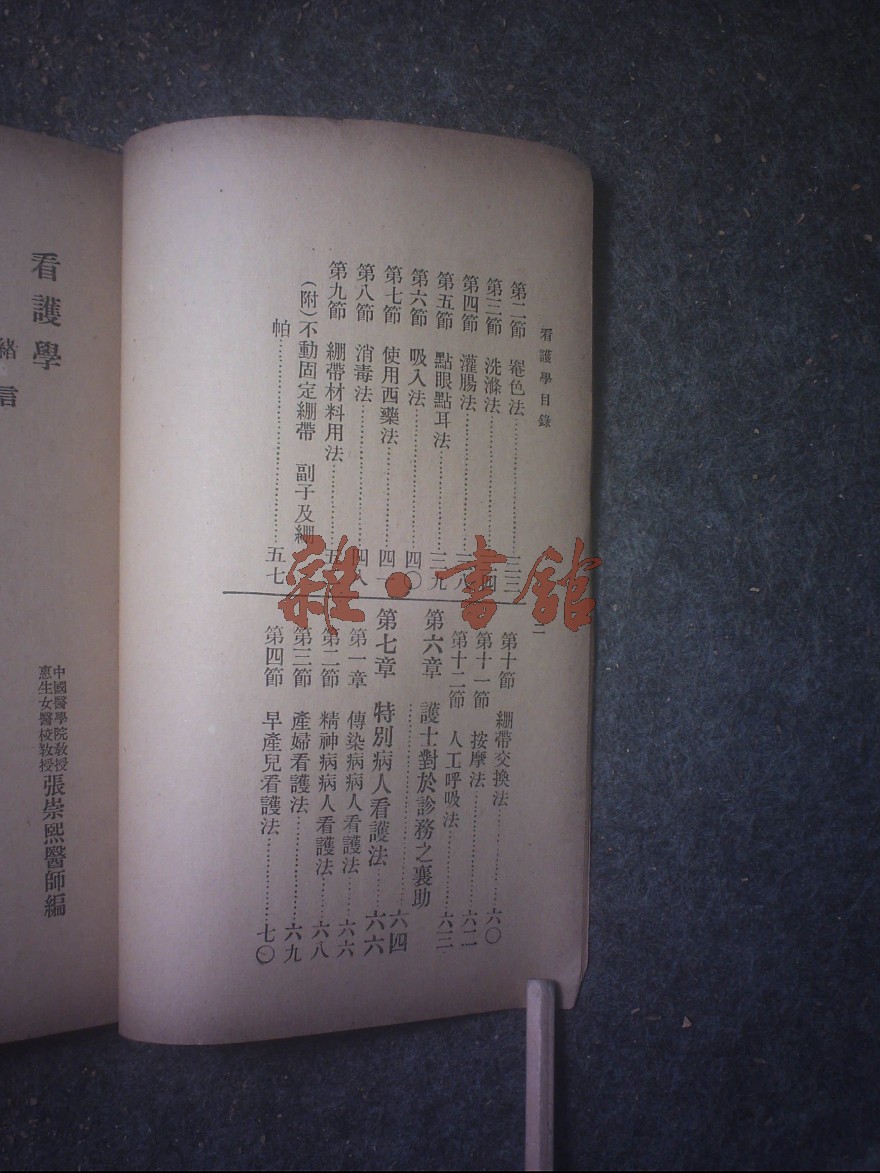 看護學目錄
二
第二節 罨色法……三三
第三節 洗滌法……三四
第四節 灌腸法……三八
第五節 點眼點耳法……三九
第六節 吸入法……四〇
第七節 使用西藥法……四一
第八節 消毒法……四八
第九節 綳帶材料用法……五
(附)不動固定綳帶 副子及綳
帕……五七
第十節 綳帶交換法……六〇
第十一節 按摩法……六二
第十二節 人工呼吸法……六三
第六章 護士對於診務之襄助
……六四
第七章 特別病人看護法……六六
第一章 傳染病病人看護法……六六
第二節 精神病病人看護法……六八
第三節 產婦看護法……六九
第四節 早產兒看護法……七〇
雜·書館
中國醫學院教授
惠生女醫校教授
張崇熙醫師編
看護學
緒言